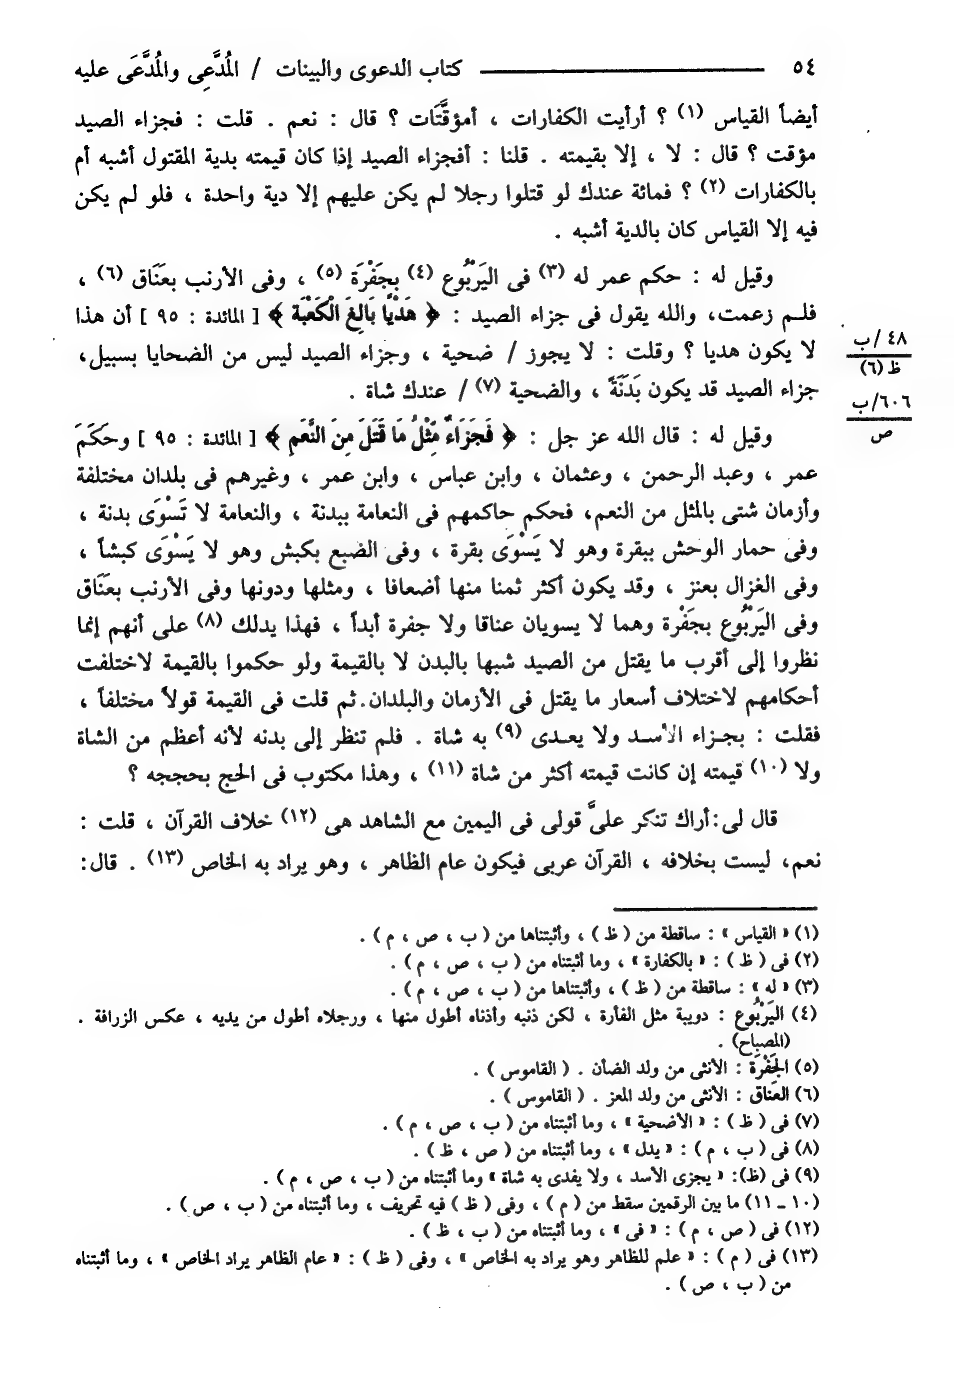 ٥٤ ــــــــــ كتاب الدعوى والبينات / المُدَّعِى والمُدَّعَى عليه
أيضاً القياس (١) ؟ أرأيت الكفارات ، أمؤقَّتَات ؟ قال : نعم . قلت : فجزاء الصيد
مؤقت ؟ قال : لا ، إلا بقيمته . قلنا : أفجزاء الصيد إذا كان قيمته بدية المقتول أشبه أم
بالكفارات (٢) ؟ فمائة عندك لو قتلوا رجلا لم يكن عليهم إلا دية واحدة ، فلو لم يكن
فيه إلا القياس كان بالدية أشبه .
وقيل له : حكم عمر له (٣) فى اليَرْبُوع (٤) بجَفْرَة (٥) ، وفى الأرنب بعَنَاق (٦) ،
فلم زعمت، والله يقول فى جزاء الصيد : ﴿ هَدْيًا بَالِغَ الْكَعْبَة ﴾ [ المائدة : ٩٥ ] أن هذا
لا يكون هديا ؟ وقلت : لا يجوز / ضحية ، وجزاء الصيد ليس من الضحايا بسبيل،
جزاء الصيد قد يكون بَدَنَةً ، والضحية (٧) / عندك شاة .
٤٨/ب
ظ (٦)
٦٠٦/ب
ص
وقيل له : قال الله عز جل : ﴿ فَجَزَاءٌ مِّثْلُ مَا قَتَلَ مِنَ النَّعَمِ ﴾ [ المائدة : ٩٥ ] وحَكَمَ
عمر ، وعبد الرحمن ، وعثمان ، وابن عباس ، وابن عمر ، وغيرهم فى بلدان مختلفة
وأزمان شتى بالمثل من النعم، فحكم حاكمهم فى النعامة ببدنة ، والنعامة لا تَسْوَى بدنة ،
وفى حمار الوحش ببقرة وهو لا يَسْوَى بقرة ، وفى الضبع بكبش وهو لا يَسْوَى كبشاً ،
وفى الغزال بعنز ، وقد يكون أكثر ثمنا منها أضعافا ، ومثلها ودونها وفى الأرنب بعَنَاق
وفى اليَرْبُوع بجَفْرة وهما لا يسويان عناقا ولا جفرة أبداً ، فهذا يدلك (٨) على أنهم إنما
نظروا إلى أقرب ما يقتل من الصيد شبها بالبدن لا بالقيمة ولو حكموا بالقيمة لاختلفت
أحكامهم لاختلاف أسعار ما يقتل فى الأزمان والبلدان. ثم قلت فى القيمة قولاً مختلفاً ،
فقلت : بجزاء الأسد ولا يعدى (٩) به شاة . فلم تنظر إلى بدنه لأنه أعظم من الشاة
ولا (١٠) قيمته إن كانت قيمته أكثر من شاة (١١) ، وهذا مكتوب فى الحج بحججه ؟
قال لى: أراك تنكر علىَّ قولى فى اليمين مع الشاهد هى (١٢) خلاف القرآن ، قلت :
نعم، ليست بخلافه ، القرآن عربى فيكون عام الظاهر ، وهو يراد به الخاص (١٣) . قال:
(١) « القياس » : ساقطة من ( ظ ) ، وأثبتناها من ( ب ، ص ، م ) .
(٢) فى ( ظ ) : « بالكفارة » ، وما أثبتناه من ( ب ، ص ، م ) .
(٣) « له » : ساقطة من ( ظ ) ، وأثبتناها من ( ب ، ص ، م ) .
(٤) اليَرْبُوع : دويبة مثل الفأرة ، لكن ذنبه وأذناه أطول منها ، ورجلاه أطول من يديه ، عكس الزرافة .
(المصباح) .
(٥) الجَفْرَة : الأنثى من ولد الضأن . ( القاموس ) .
(٦) العَناق : الأنثى من ولد المعز . ( القاموس ) .
(٧) فى ( ظ ) : « الأضحية » ، وما أثبتناه من ( ب ، ص ، م ) .
(٨) فى ( ب ، م ) : « يدل » ، وما أثبتناه من ( ص ، ظ ) .
(٩) فى (ظ): « يجزى الأسد ، ولا يفدى به شاة » وما أثبتناه من ( ب ، ص ، م ) .
(١٠ ـ ١١) ما بين الرقمين سقط من ( م ) ، وفى ( ظ ) فيه تحريف ، وما أثبتناه من ( ب ، ص ) .
(١٢) فى ( ص ، م ) : « فى » ، وما أثبتناه من ( ب ، ظ ) .
(١٣) فى ( م ) : « علم للظاهر وهو يراد به الخاص » ، وفى ( ظ ) : « عام الظاهر يراد الخاص » ، وما أثبتناه
من ( ب ، ص ) .